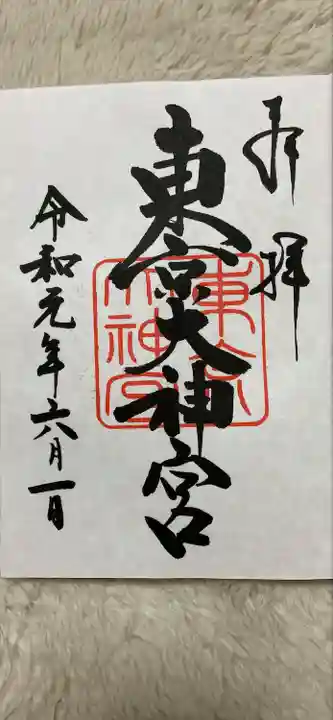 奉拝
東京大神宮
東京大神宮
令和元年六月一日